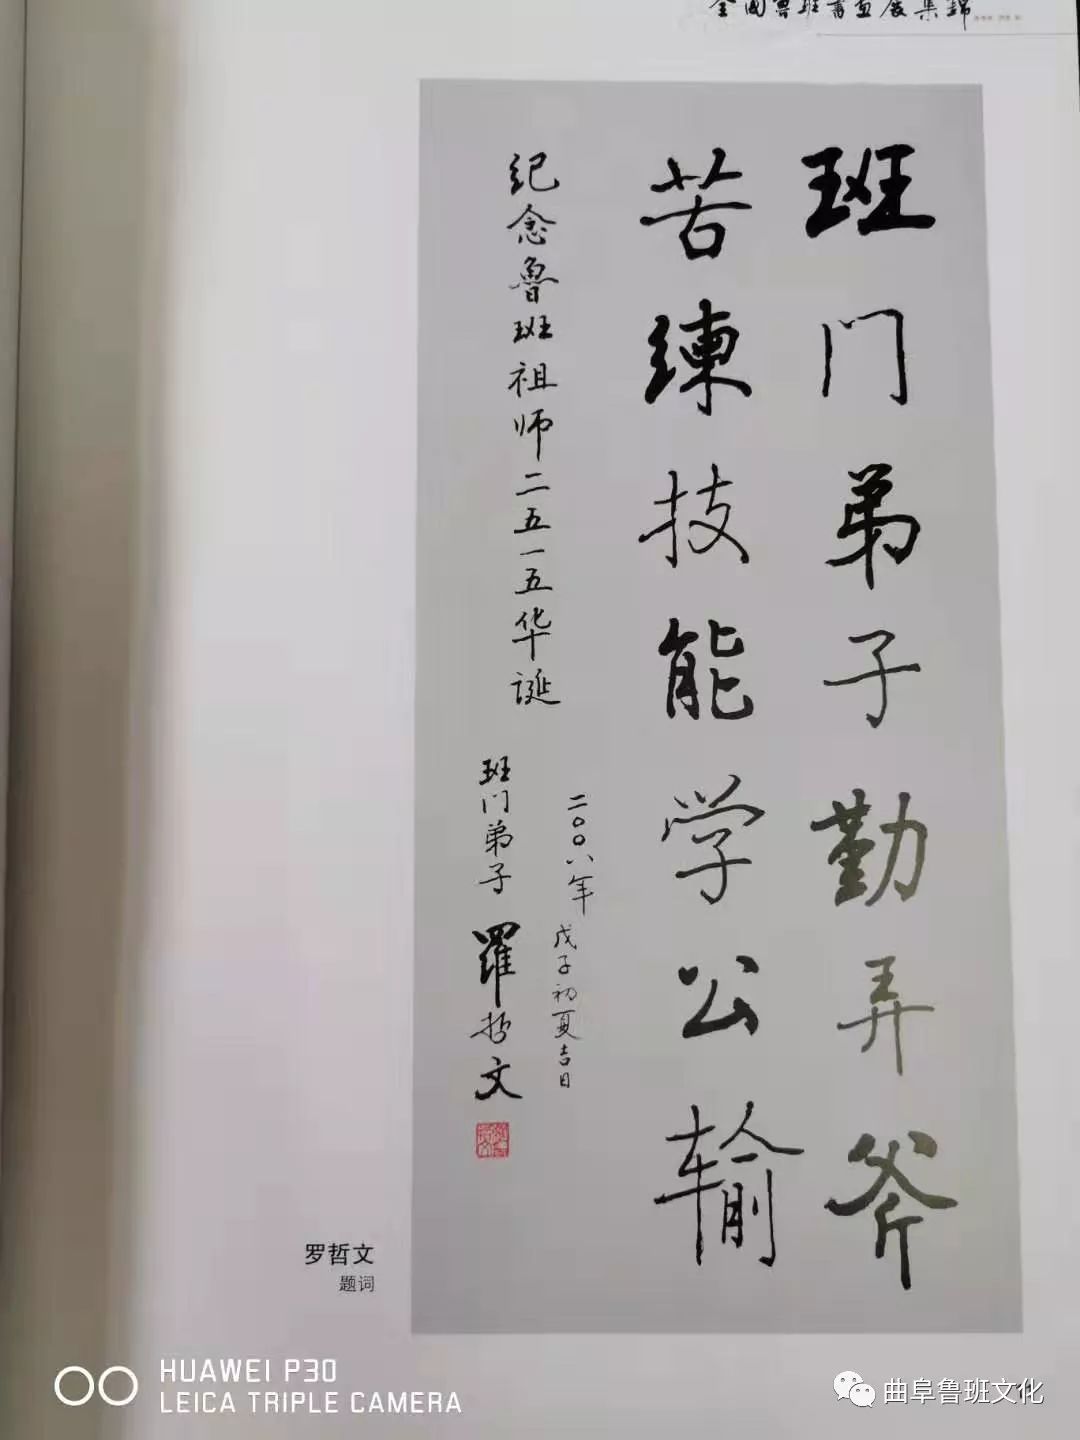 全国鲁班书画展集锦
班门弟子勤弄斧
苦練技能学公输
纪念鲁班祖师二五一五华诞
二〇〇八年戊子初夏吉日
班门弟子羅哲文
罗哲文
题词
HUAWEI P30
LEICA TRIPLE CAMERA
曲阜鲁班文化